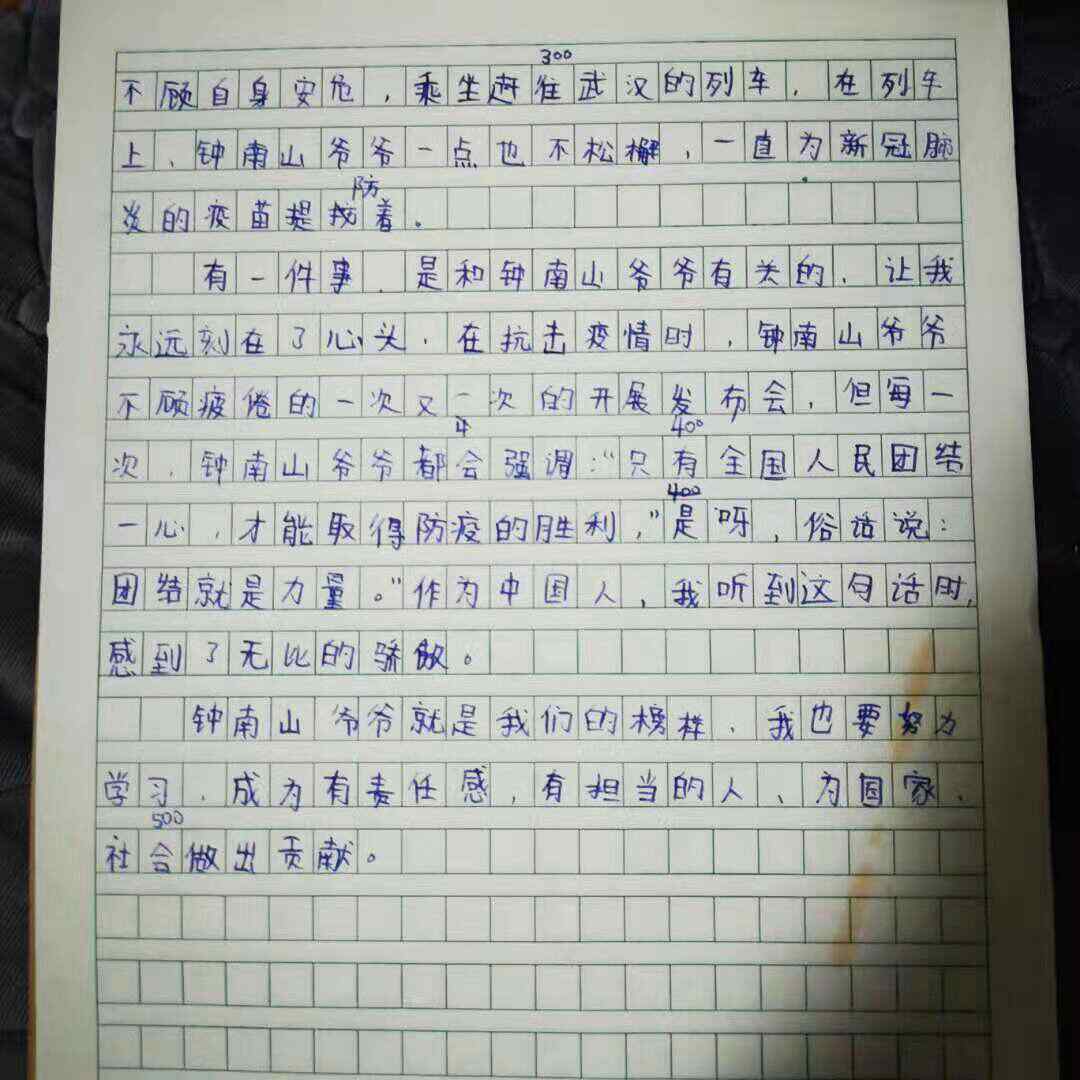 300
不顾自身安危，乘坐赶往武汉的列车，在列车
上，钟南山爷爷一点也不松懈，一直为新冠肺
防
炎的疫苗提着。
有一件事，是和钟南山爷爷有关的，让我
永远刻在了心头，在抗击疫情时，钟南山爷爷
不顾疲倦的一次又一次的开展发布会，但每一
400
次，钟南山爷爷都会强调：“只有全国人民团结
400
一心，才能取得防疫的胜利，”是呀，俗话说：
团结就是力量。”作为中国人，我听到这句话时，
感到了无比的骄傲。
钟南山爷爷就是我们的榜样，我也要努力
学习，成为有责任感，有担当的人、为国家、
500
社会做出贡献。